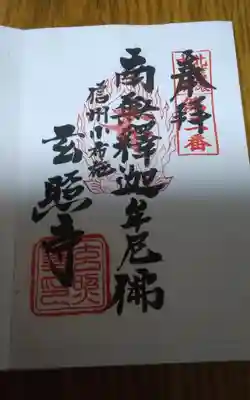 奉拝
南無釋迦牟尼佛
信州小布施
玄照寺